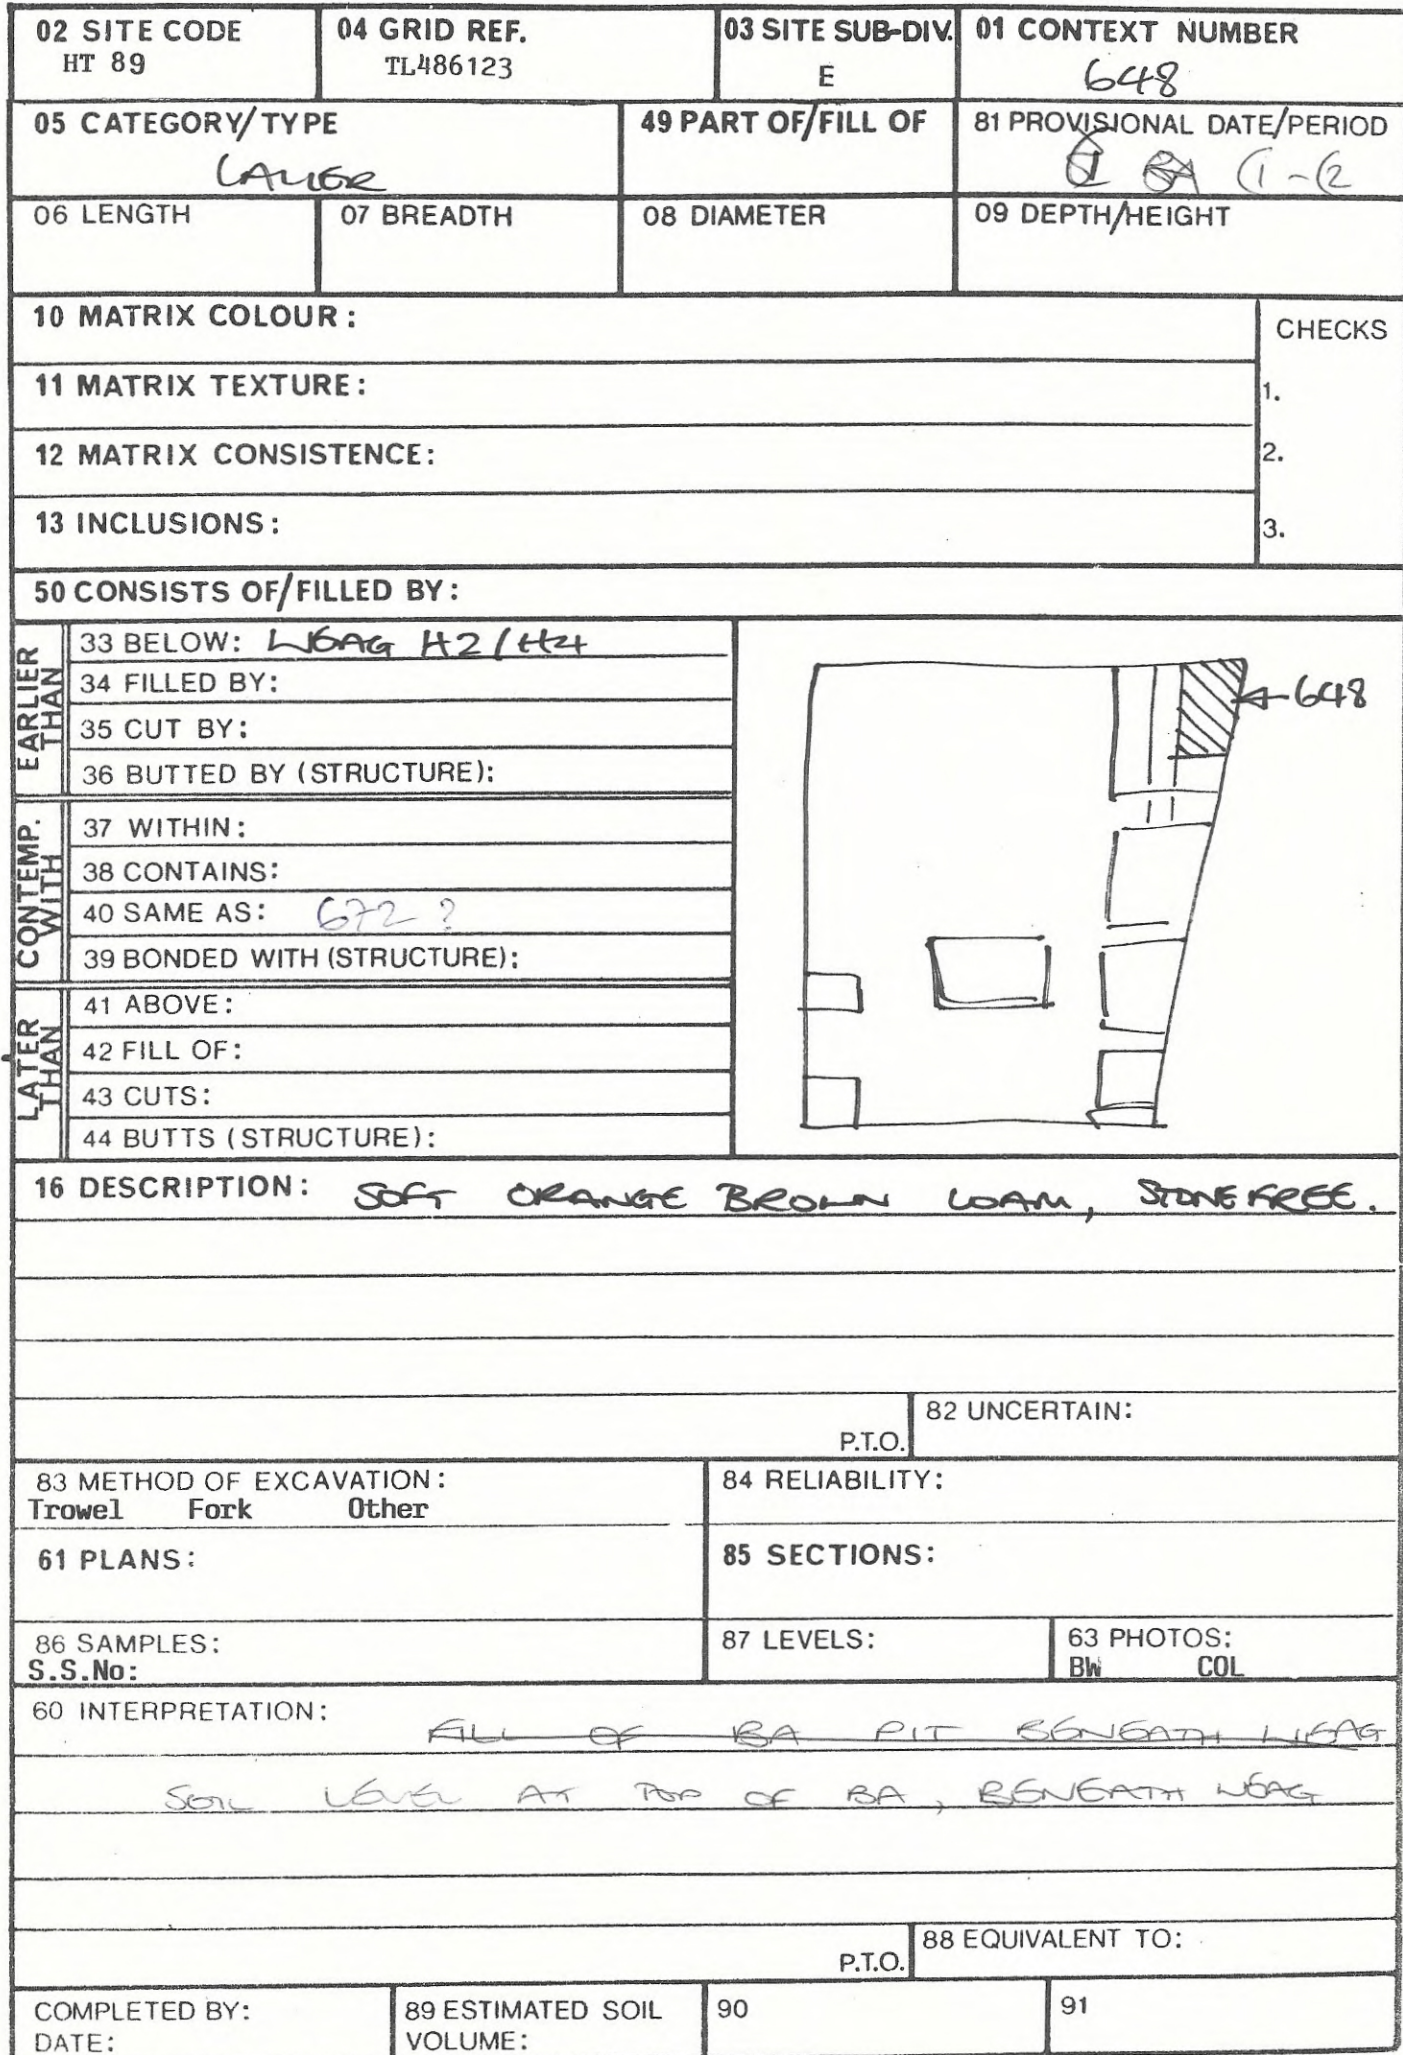 02 SITE CODE
HT 89
04 GRID REF.
TL486123
03 SITE SUB-DIV.
E
01 CONTEXT NUMBER
648
05 CATEGORY/TYPE
LAYER
49 PART OF/FILL OF
81 PROVISIONAL DATE/PERIOD
BA C1-C2
06 LENGTH
07 BREADTH
08 DIAMETER
09 DEPTH/HEIGHT
10 MATRIX COLOUR:
CHECKS
11 MATRIX TEXTURE:
1.
12 MATRIX CONSISTENCE:
2.
13 INCLUSIONS:
3.
50 CONSISTS OF/FILLED BY:
EARLIER THAN
33 BELOW: WEAG H2/H4
34 FILLED BY:
35 CUT BY:
36 BUTTED BY (STRUCTURE):
CONTEMP. WITH
37 WITHIN:
38 CONTAINS:
40 SAME AS: 672 ?
39 BONDED WITH (STRUCTURE):
LATER THAN
41 ABOVE:
42 FILL OF:
43 CUTS:
44 BUTTS (STRUCTURE):
648
16 DESCRIPTION: SOFT ORANGE BROWN LOAM, STONE FREE.
P.T.O.
82 UNCERTAIN:
83 METHOD OF EXCAVATION:
Trowel Fork Other
84 RELIABILITY:
61 PLANS:
85 SECTIONS:
86 SAMPLES:
S.S.No:
87 LEVELS:
63 PHOTOS:
BW COL
60 INTERPRETATION:
FILL OF BA PIT BENEATH WEAG
SOIL LEVEL AT TOP OF BA, BENEATH WEAG
P.T.O.
88 EQUIVALENT TO:
COMPLETED BY:
DATE:
89 ESTIMATED SOIL
VOLUME:
90
91